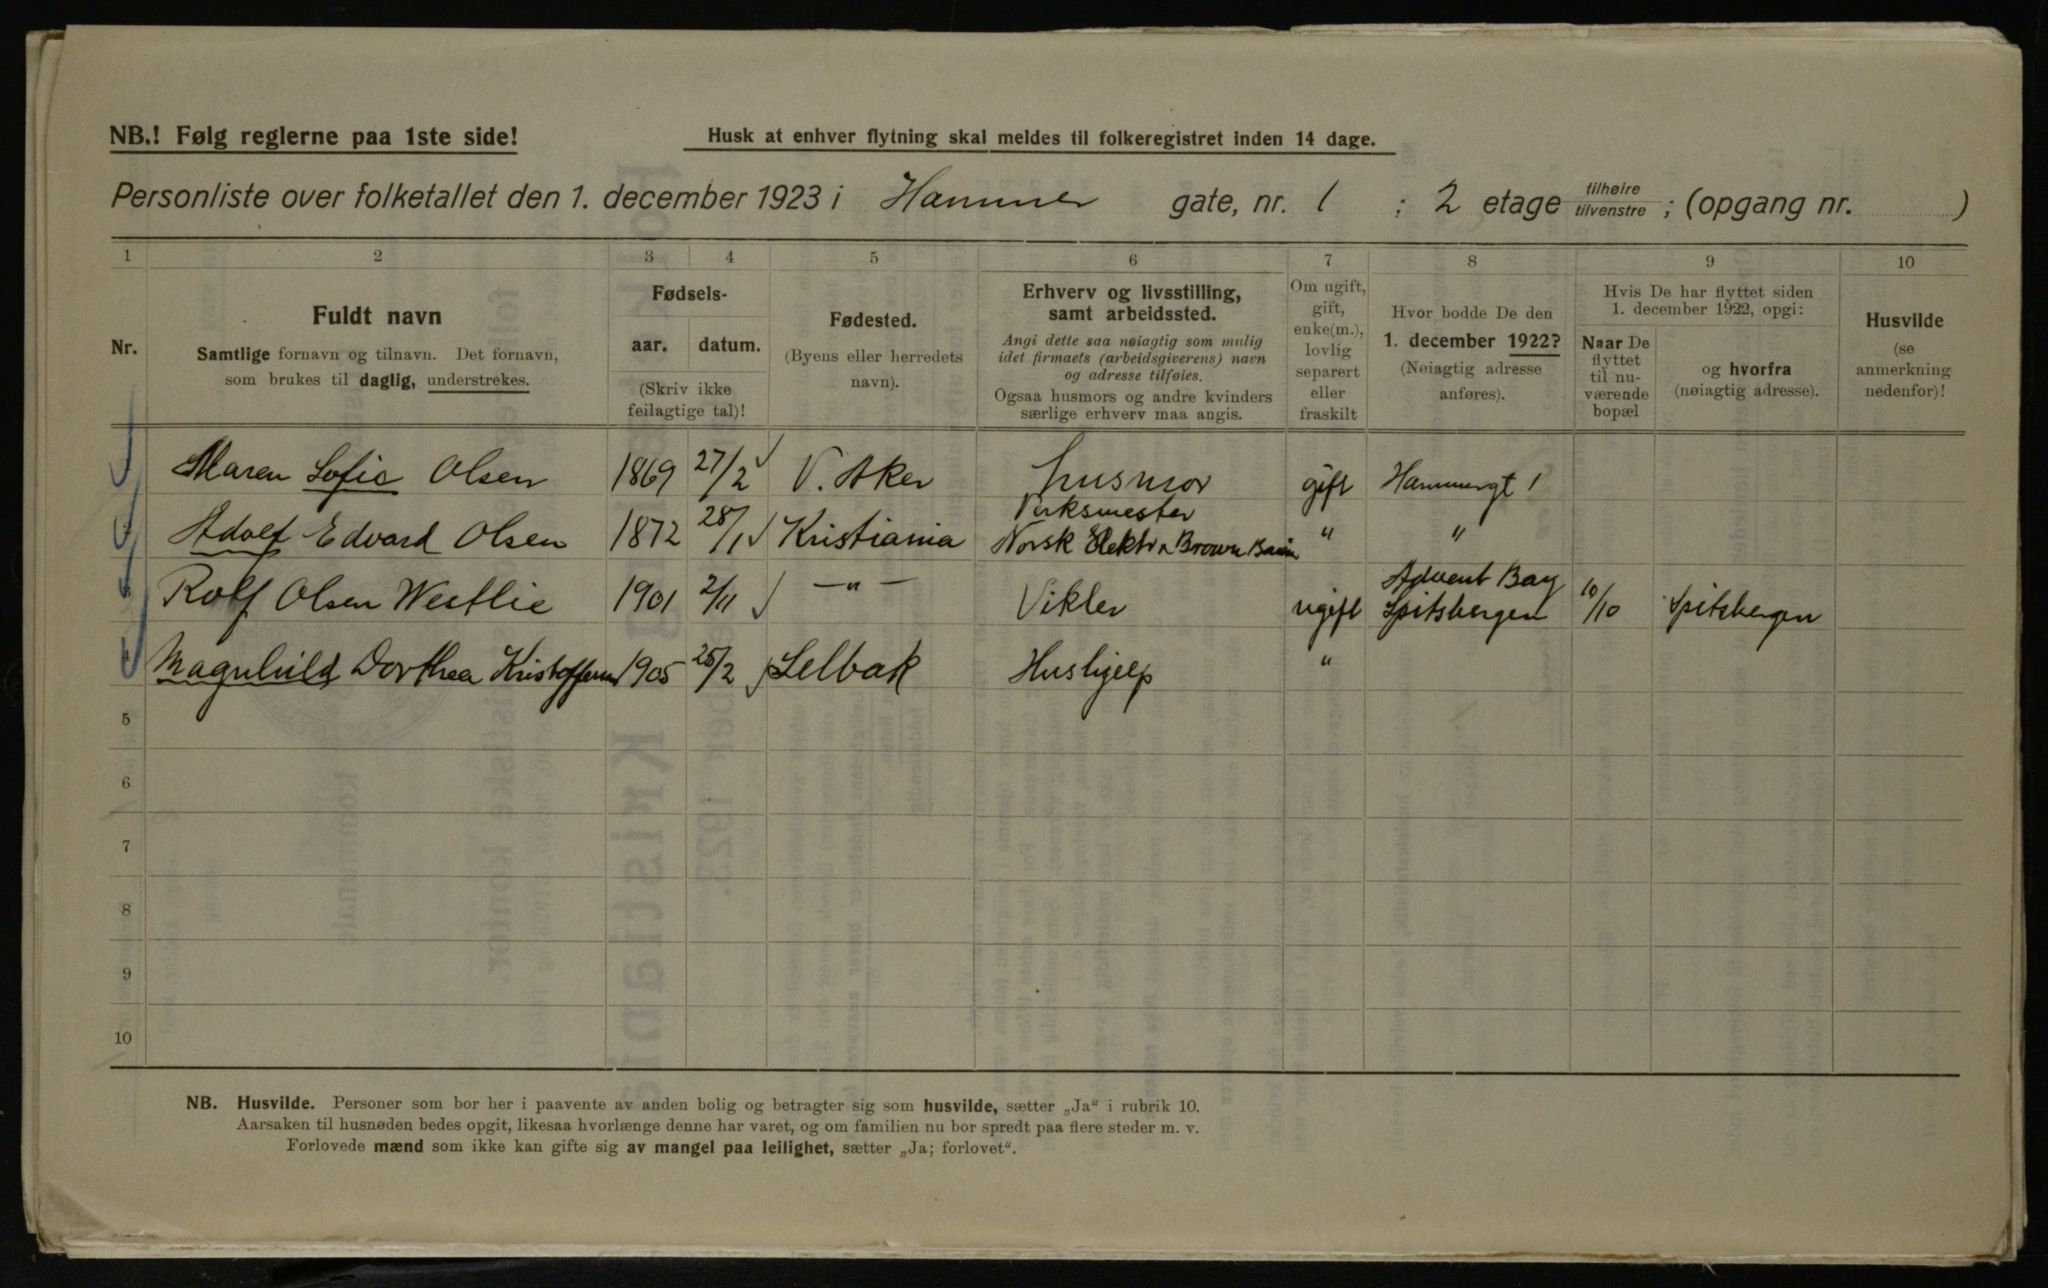 NB.! Følg reglerne paa 1ste side!
Husk at enhver flytning skal meldes til folkeregistret inden 14 dage.
Personliste over folketallet den 1. december 1923 i Hammer gate, nr. 1 ; 2 etage tilhøire tilvenstre ; (opgang nr. )
1 2 3 4 5 6 7 8 9 10
Nr.
Fuldt navn
Samtlige fornavn og tilnavn. Det fornavn,
som brukes til daglig, understrekes.
Fødsels-
aar. datum.
(Skriv ikke
feilagtige tal)!
Fødested.
(Byens eller herredets
navn).
Erhverv og livsstilling,
samt arbeidssted.
Angi dette saa nøiagtig som mulig
idet firmaets (arbeidsgiverens) navn
og adresse tilføies.
Ogsaa husmors og andre kvinders
særlige erhverv maa angis.
Om ugift,
gift,
enke(m.),
lovlig
separert
eller
fraskilt
Hvor bodde De den
1. december 1922?
(Nøiagtig adresse
anføres).
Hvis De har flyttet siden
1. december 1922, opgi:
Naar De
flyttet
til nu-
værende
bopæl
og hvorfra
(nøiagtig adresse).
Husvilde
(se
anmerkning
nedenfor)!
Maren Sofie Olsen 1869 27/2 V. Aker husmor gift Hammergt 1
Adolf Edvard Olsen 1872 28/1 Kristiania Verksmester
Norsk Elektr. Brown " "
Rolf Olsen Westlie 1901 2/11 —"— Vikler ugift Advent Bay
Spitsbergen 10/10 Spitsbergen
4 Magnhild Dorthea 1905 25/2 Selbak Hushjelp "
5
6
7
8
9
10
NB. Husvilde. Personer som bor her i paavente av anden bolig og betragter sig som husvilde, sætter „Ja“ i rubrik 10.
Aarsaken til husnøden bedes opgit, likesaa hvorlænge denne har varet, og om familien nu bor spredt paa flere steder m. v.
Forlovede mænd som ikke kan gifte sig av mangel paa leilighet, sætter „Ja; forlovet“.